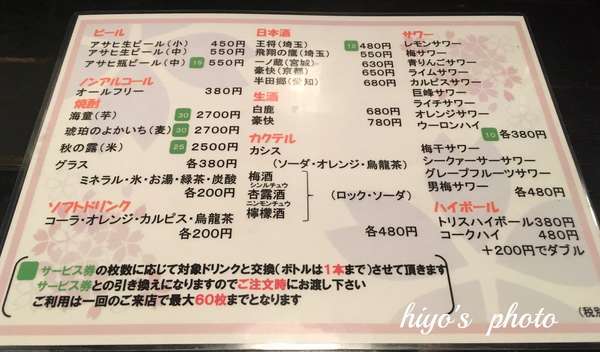 ビール
アサヒ生ビール(小) 450円
アサヒ生ビール(中) 550円
アサヒ瓶ビール(中) 15 550円
ノンアルコール
オールフリー 380円
焼酎
海童(芋) 30 2700円
琥珀のよかいち(麦) 30 2700円
秋の露(米) 25 2500円
グラス 各380円
ミネラル・氷・お湯・緑茶・炭酸
各200円
ソフトドリンク
コーラ・オレンジ・カルピス・烏龍茶
各200円
日本酒
王将(埼玉) 12 480円
飛翔の鷹(埼玉) 550円
一ノ蔵(宮城) 630円
豪快(京都) 650円
半田郷(愛知) 680円
生酒
白鹿 680円
豪快 780円
カクテル
カシス
(ソーダ・オレンジ・烏龍茶)
梅酒
シンルチュウ
杏露酒 (ロック・ソーダ)
ニンモンチュウ
檸檬酒
各480円
サワー
レモンサワー
梅サワー
青りんごサワー
ライムサワー
カルピスサワー
巨峰サワー
ライチサワー
オレンジサワー
ウーロンハイ
10 各380円
梅干サワー
シークァーサーサワー
グレープフルーツサワー
男梅サワー
各480円
ハイボール
トリスハイボール380円
コークハイ 480円
+200円でダブル
サービス券の枚数に応じて対象ドリンクと交換(ボトルは1本まで)させて頂きます
サービス券との引き換えになりますのでご注文時にお渡し下さい
ご利用は一回のご来店で最大60枚までとなります
(税別
hiyo's photo